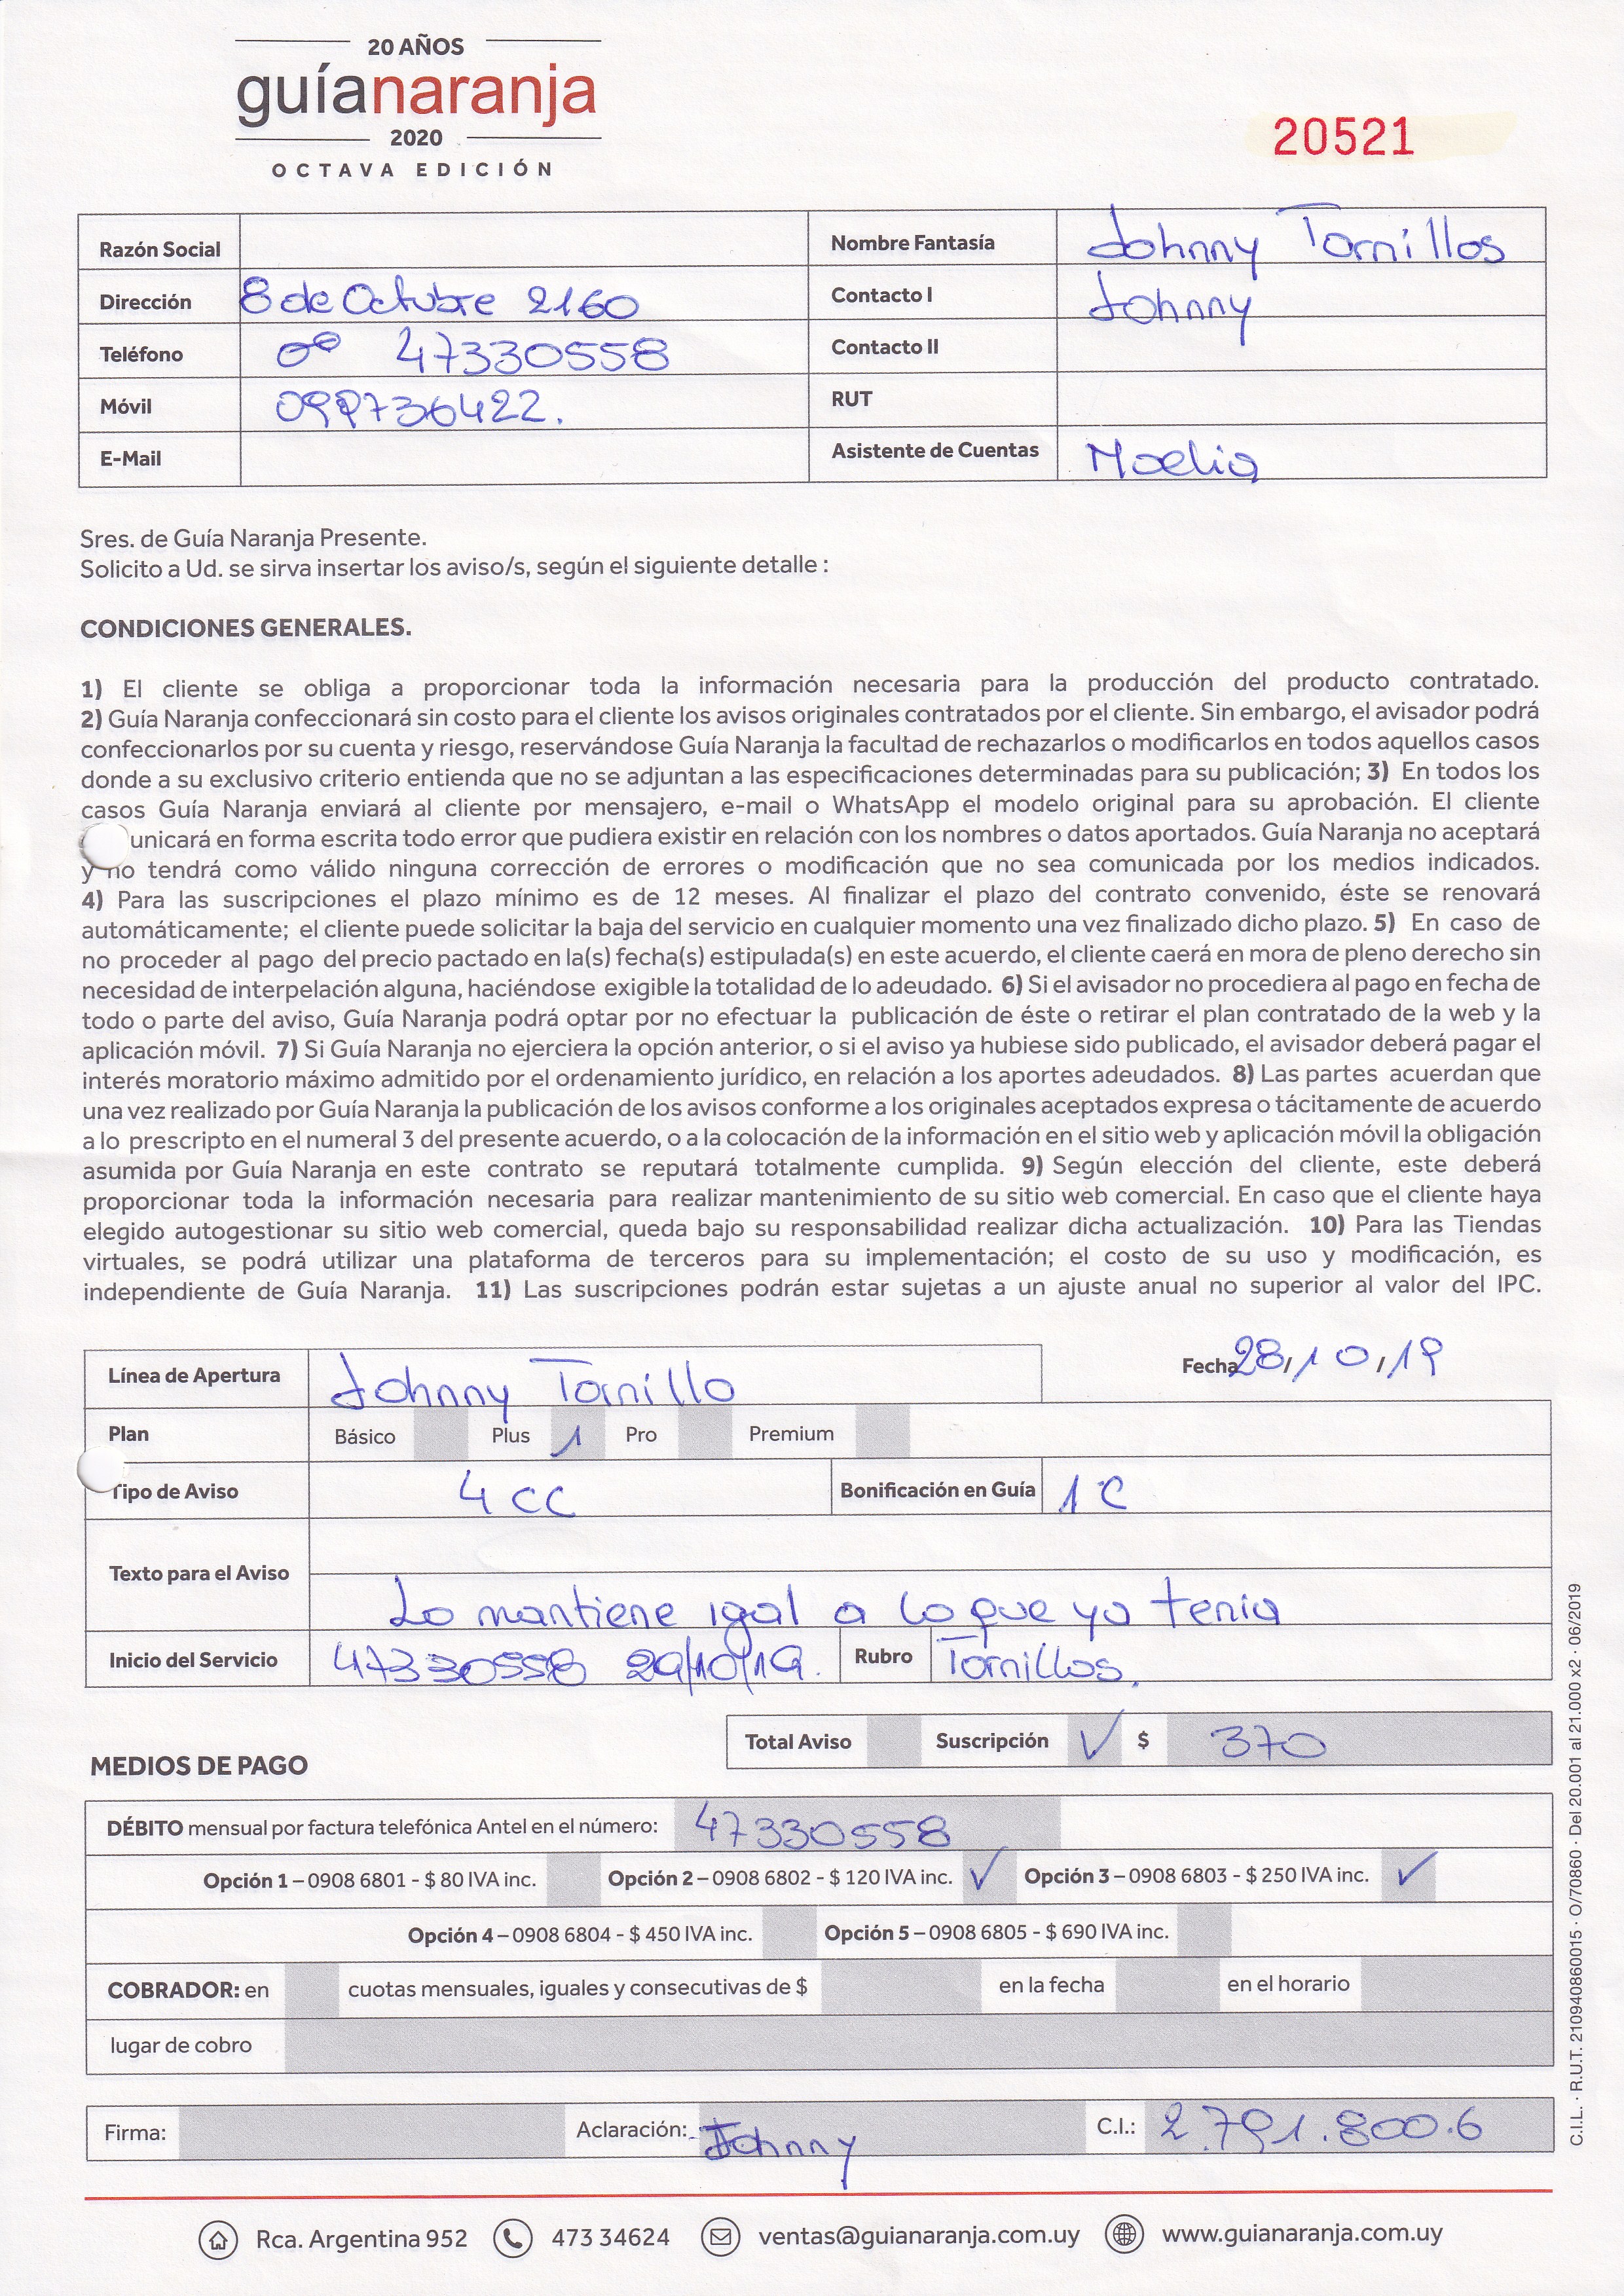 20 AÑOS
guíanaranja
2020
OCTAVA EDICIÓN
20521
Razón Social
Nombre Fantasía Johnny Tornillos
Dirección 8 de Octubre 2160
Contacto I Johnny
Teléfono 47330558
Contacto II
Móvil 099736422.
RUT
E-Mail
Asistente de Cuentas Noelia
Sres. de Guía Naranja Presente.
Solicito a Ud. se sirva insertar los aviso/s, según el siguiente detalle :
CONDICIONES GENERALES.
1) El cliente se obliga a proporcionar toda la información necesaria para la producción del producto contratado.
2) Guía Naranja confeccionará sin costo para el cliente los avisos originales contratados por el cliente. Sin embargo, el avisador podrá
confeccionarlos por su cuenta y riesgo, reservándose Guía Naranja la facultad de rechazarlos o modificarlos en todos aquellos casos
donde a su exclusivo criterio entienda que no se adjuntan a las especificaciones determinadas para su publicación; 3) En todos los
casos Guía Naranja enviará al cliente por mensajero, e-mail o WhatsApp el modelo original para su aprobación. El cliente
unicará en forma escrita todo error que pudiera existir en relación con los nombres o datos aportados. Guía Naranja no aceptará
y no tendrá como válido ninguna corrección de errores o modificación que no sea comunicada por los medios indicados.
4) Para las suscripciones el plazo mínimo es de 12 meses. Al finalizar el plazo del contrato convenido, éste se renovará
automáticamente; el cliente puede solicitar la baja del servicio en cualquier momento una vez finalizado dicho plazo. 5) En caso de
no proceder al pago del precio pactado en la(s) fecha(s) estipulada(s) en este acuerdo, el cliente caerá en mora de pleno derecho sin
necesidad de interpelación alguna, haciéndose exigible la totalidad de lo adeudado. 6) Si el avisador no procediera al pago en fecha de
todo o parte del aviso, Guía Naranja podrá optar por no efectuar la publicación de éste o retirar el plan contratado de la web y la
aplicación móvil. 7) Si Guía Naranja no ejerciera la opción anterior, o si el aviso ya hubiese sido publicado, el avisador deberá pagar el
interés moratorio máximo admitido por el ordenamiento jurídico, en relación a los aportes adeudados. 8) Las partes acuerdan que
una vez realizado por Guía Naranja la publicación de los avisos conforme a los originales aceptados expresa o tácitamente de acuerdo
a lo prescripto en el numeral 3 del presente acuerdo, o a la colocación de la información en el sitio web y aplicación móvil la obligación
asumida por Guía Naranja en este contrato se reputará totalmente cumplida. 9) Según elección del cliente, este deberá
proporcionar toda la información necesaria para realizar mantenimiento de su sitio web comercial. En caso que el cliente haya
elegido autogestionar su sitio web comercial, queda bajo su responsabilidad realizar dicha actualización. 10) Para las Tiendas
virtuales, se podrá utilizar una plataforma de terceros para su implementación; el costo de su uso y modificación, es
independiente de Guía Naranja. 11) Las suscripciones podrán estar sujetas a un ajuste anual no superior al valor del IPC.
Línea de Apertura Johnny Tornillo
Fecha 28/10/19
Plan Básico Plus 1 Pro Premium
Tipo de Aviso 4 CC Bonificación en Guía 1 C
Texto para el Aviso
Lo mantiene igal a lo que ya tenia
Inicio del Servicio 47330558 29/10/19. Rubro Tornillos.
Total Aviso Suscripción ✓ $ 370
MEDIOS DE PAGO
DÉBITO mensual por factura telefónica Antel en el número: 47330558
Opción 1 – 0908 6801 - $ 80 IVA inc. Opción 2 – 0908 6802 - $ 120 IVA inc. ✓ Opción 3 – 0908 6803 - $ 250 IVA inc. ✓
Opción 4 – 0908 6804 - $ 450 IVA inc. Opción 5 – 0908 6805 - $ 690 IVA inc.
COBRADOR: en cuotas mensuales, iguales y consecutivas de $ en la fecha en el horario
lugar de cobro
Firma: Aclaración: Johnny C.I.: 2.791.800.6
Rca. Argentina 952 473 34624 ventas@guianaranja.com.uy www.guianaranja.com.uy
C.I.L. · R.U.T. 210940860015 · O/70860 · Del 20.001 al 21.000 x2 · 06/2019